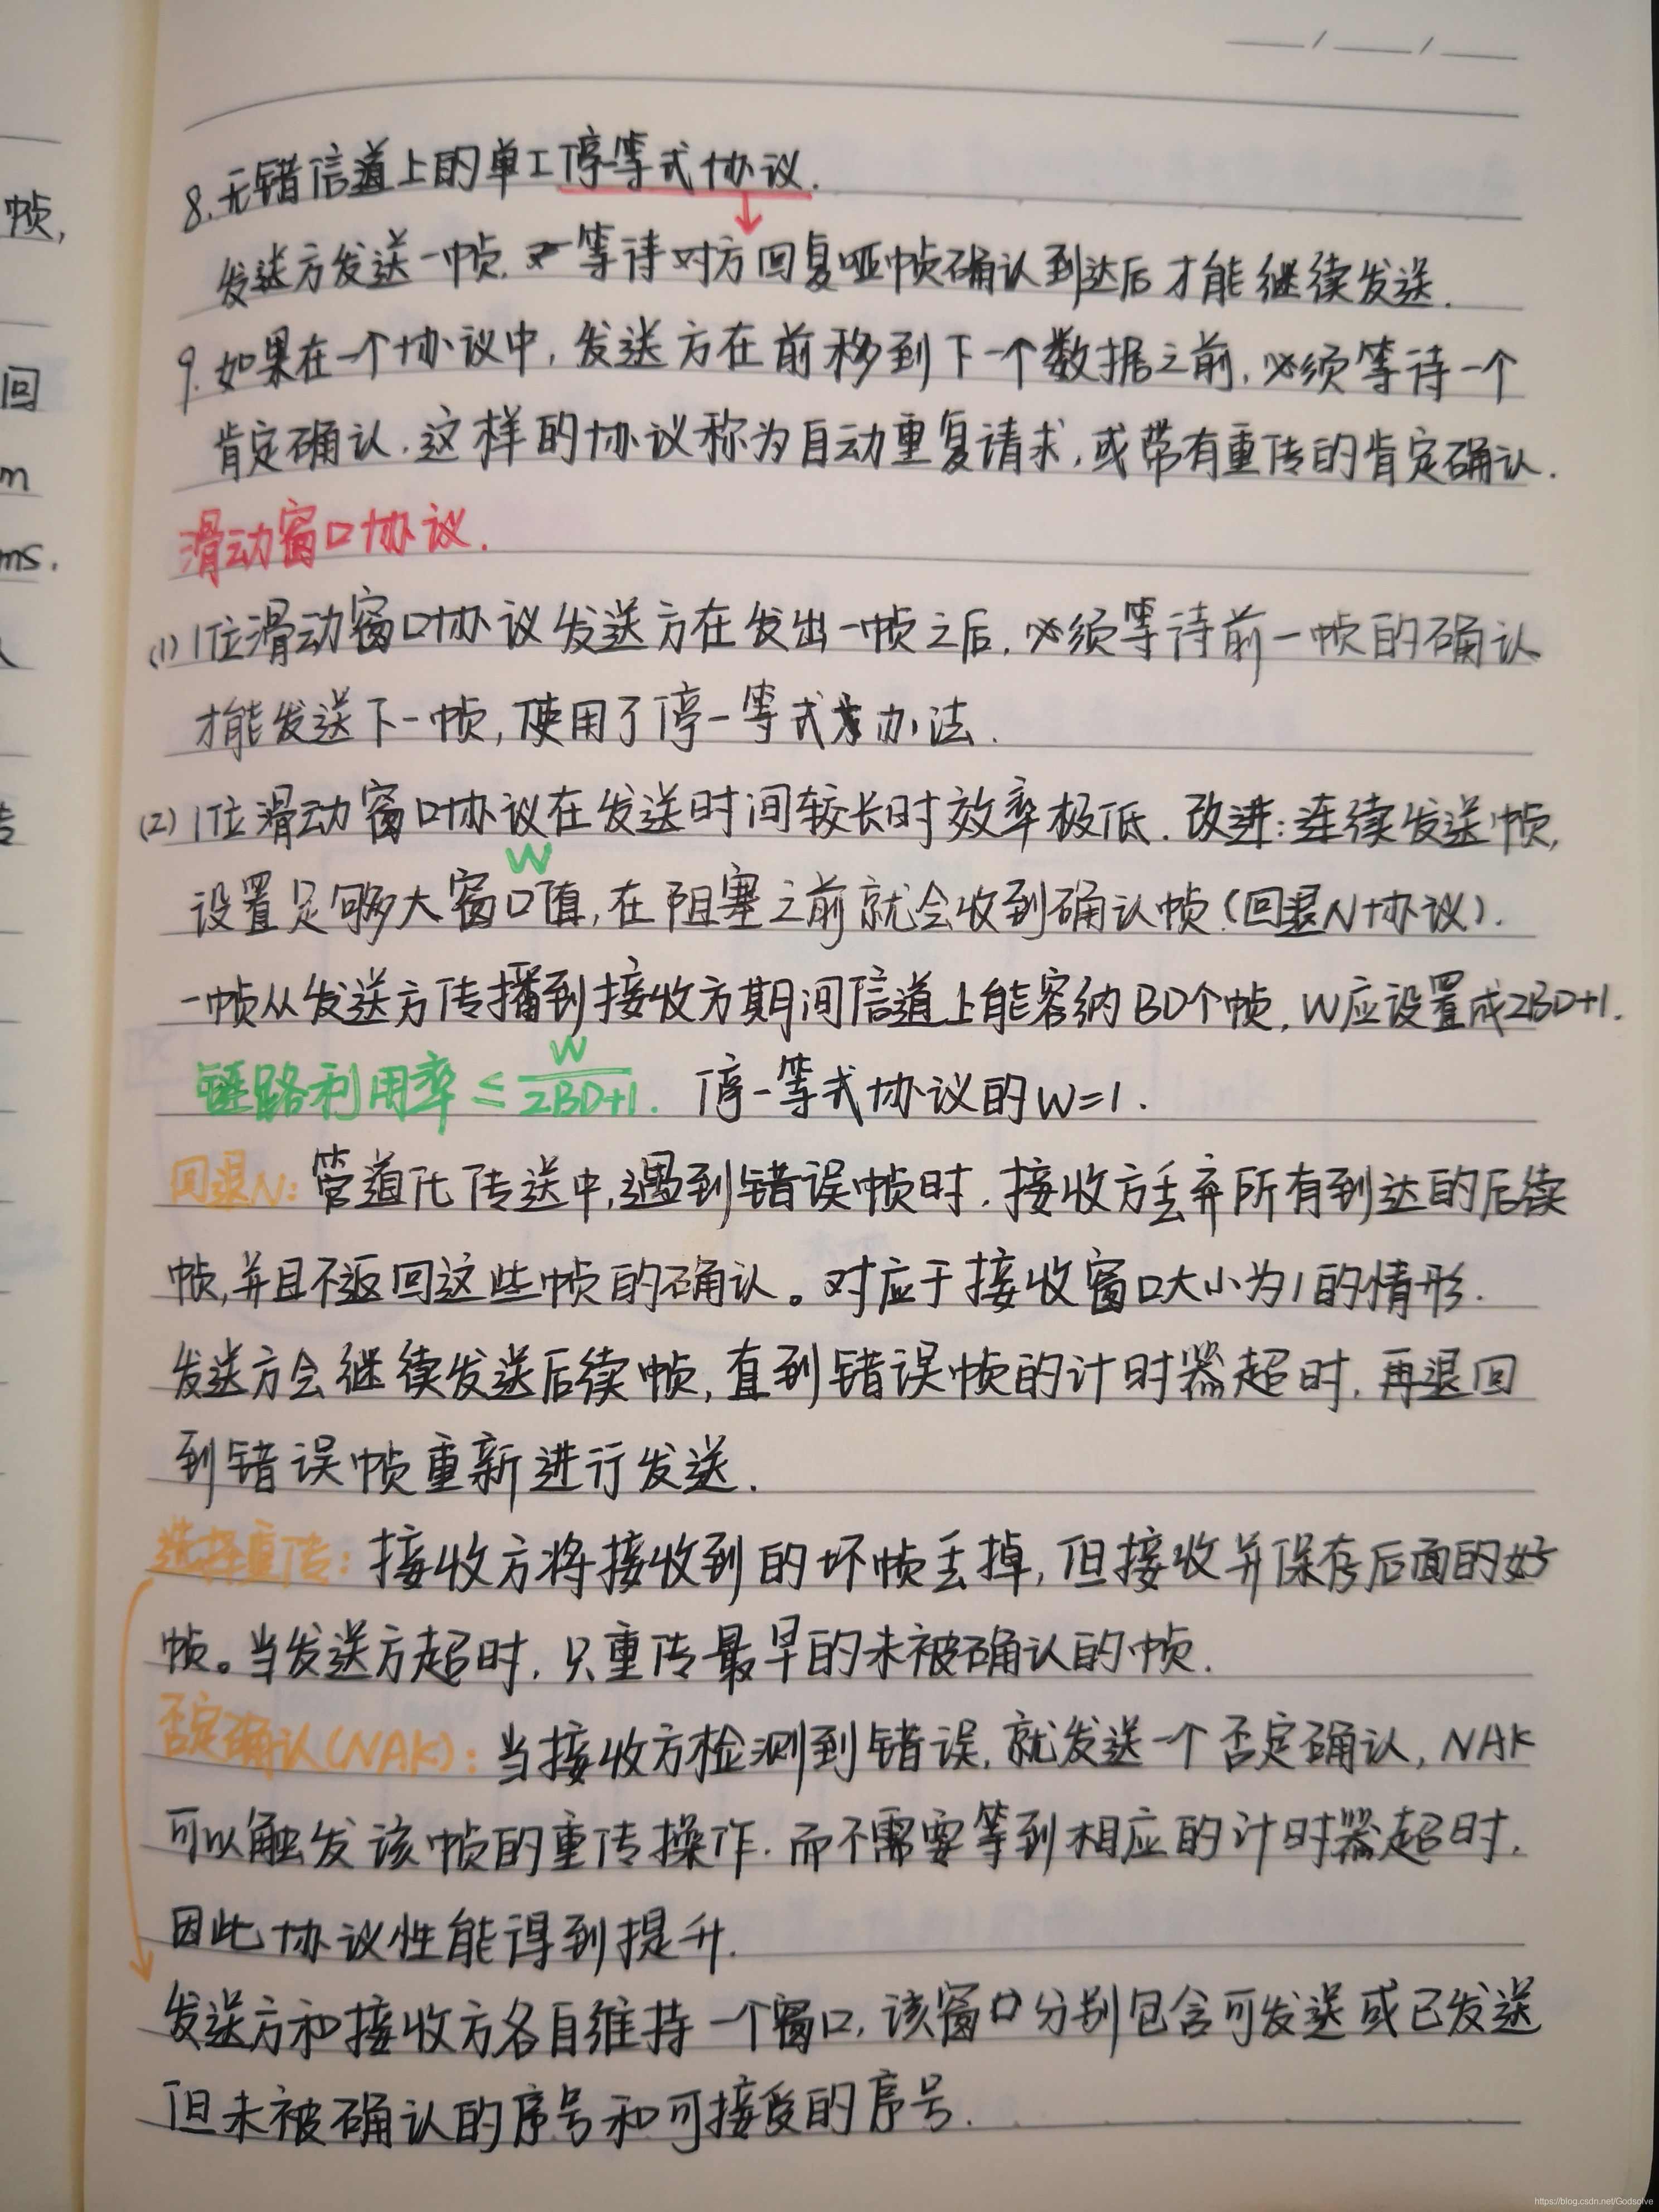 帧,
回
m
ms.
/ /
8.无错信道上的单工停-等式协议.
发送方发送一帧.等待对方回复哑帧确认到达后才能继续发送.
9.如果在一个协议中,发送方在前移到下一个数据之前,必须等待一个
肯定确认.这样的协议称为自动重复请求,或带有重传的肯定确认.
滑动窗口协议.
(1)1位滑动窗口协议发送方在发出一帧之后,必须等待前一帧的确认
才能发送下一帧,使用了停-等式办法.
(2)1位滑动窗口协议在发送时间较长时效率极低.改进:连续发送帧,
W
设置足够大窗口值,在阻塞之前就会收到确认帧(回退N协议).
一帧从发送方传播到接收方期间信道上能容纳BD个帧,W应设置成2BD+1.
链路利用率≤W/2BD+1. 停-等式协议的W=1.
回退N:管道化传送中,遇到错误帧时,接收方丢弃所有到达的后续
帧,并且不返回这些帧的确认。对应于接收窗口大小为1的情形.
发送方会继续发送后续帧,直到错误帧的计时器超时,再退回
到错误帧重新进行发送.
选择重传:接收方将接收到的坏帧丢掉,但接收并保存后面的好
帧。当发送方超时,只重传最早的未被确认的帧.
否定确认(NAK):当接收方检测到错误,就发送一个否定确认,NAK
可以触发该帧的重传操作.而不需要等到相应的计时器超时.
因此协议性能得到提升.
发送方和接收方各自维持一个窗口,该窗口分别包含可发送或已发送
但未被确认的序号和可接受的序号.
https://blog.csdn.net/Godsolve